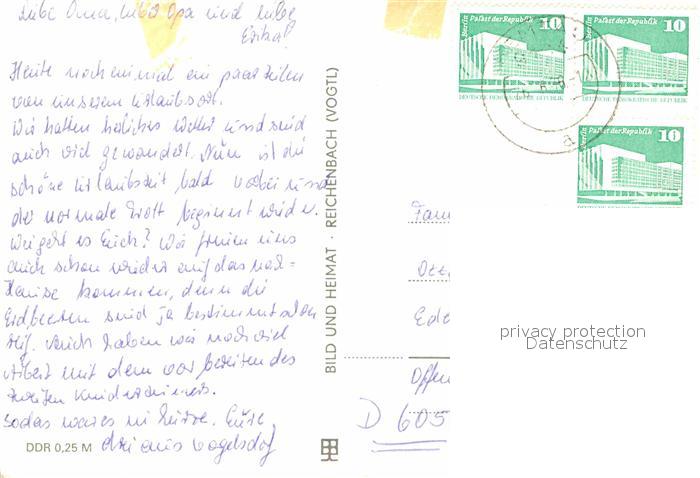 Liebe Oma, lieber Opa und liebe
Erika!
Heute noch einmal ein paar Zeilen
von unserem Urlaubsort.
Wir hatten herrliches Wetter und sind
auch viel gewandert. Nun ist die
schöne Urlaubszeit bald vorbei und
der normale Trott beginnt wieder.
Wie geht es Euch? Wir freuen uns
auch schon wieder auf das nach-
Hause kommen, denn die
Erdbeeren sind ja bestimmt schon
reif. Auch haben wir noch viel
Arbeit mit dem vorbereiten des
zweiten Kinderzimmers.
Sodas wars in Kürze. Eure
drei aus Vogelsdorf
DDR 0,25 M
BILD UND HEIMAT · REICHENBACH (VOGTL)
Berlin Palast der Republik 10
DEUTSCHE DEMOKRATISCHE REPUBLIK
Berlin Palast der Republik 10
DEUTSCHE DEMOKRATISCHE REPUBLIK
Berlin Palast der Republik 10
a
Fam
Ede
Offen
D 605
privacy protection
Datenschutz